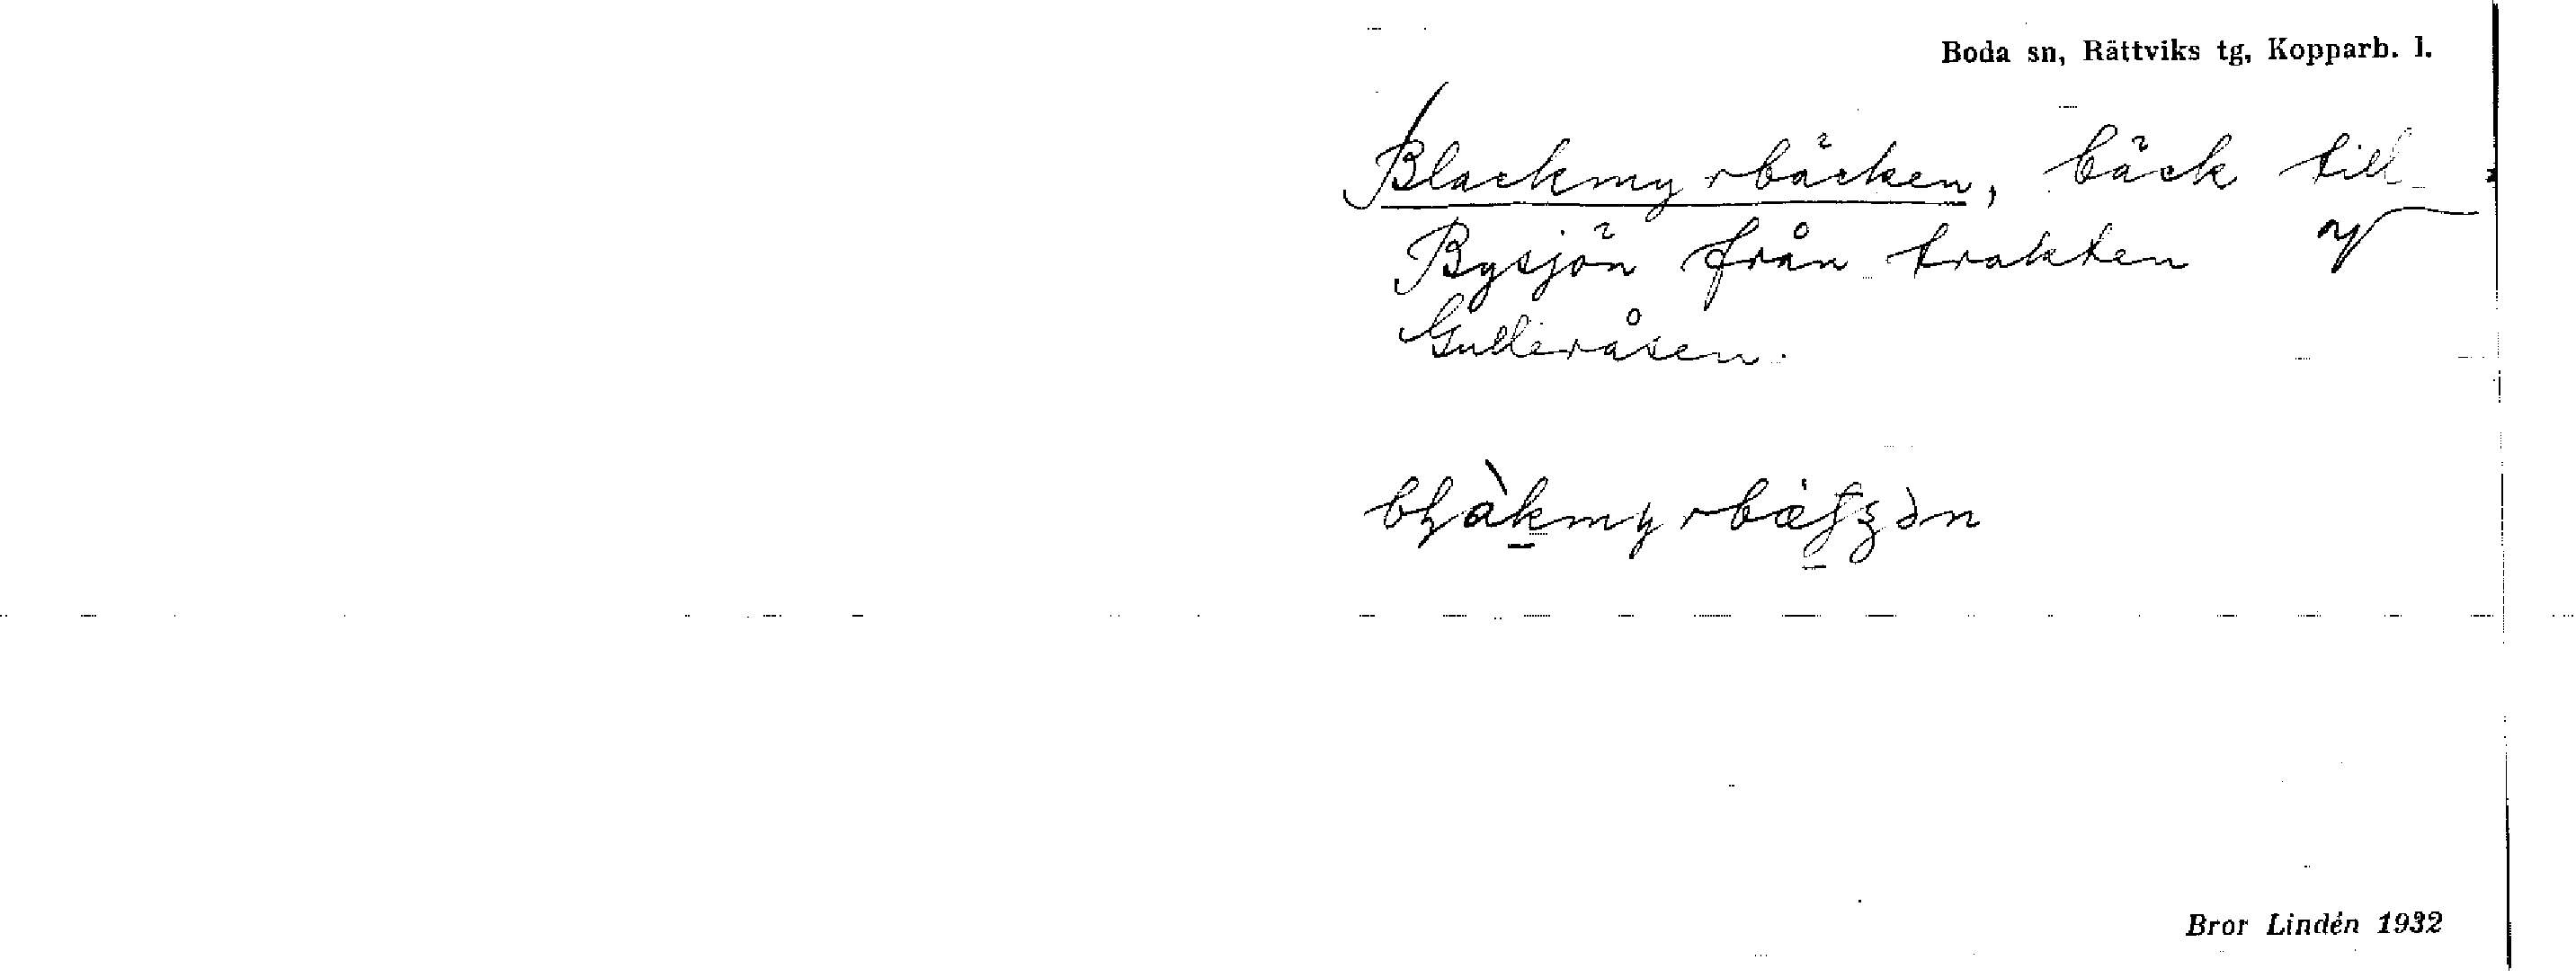 Boda sn, Rättviks tg, Kopparb. l.
Blackmyrbäcken, bäck till
Bysjön från trakten av
Gulleråsen.
Bror Lindén 1932